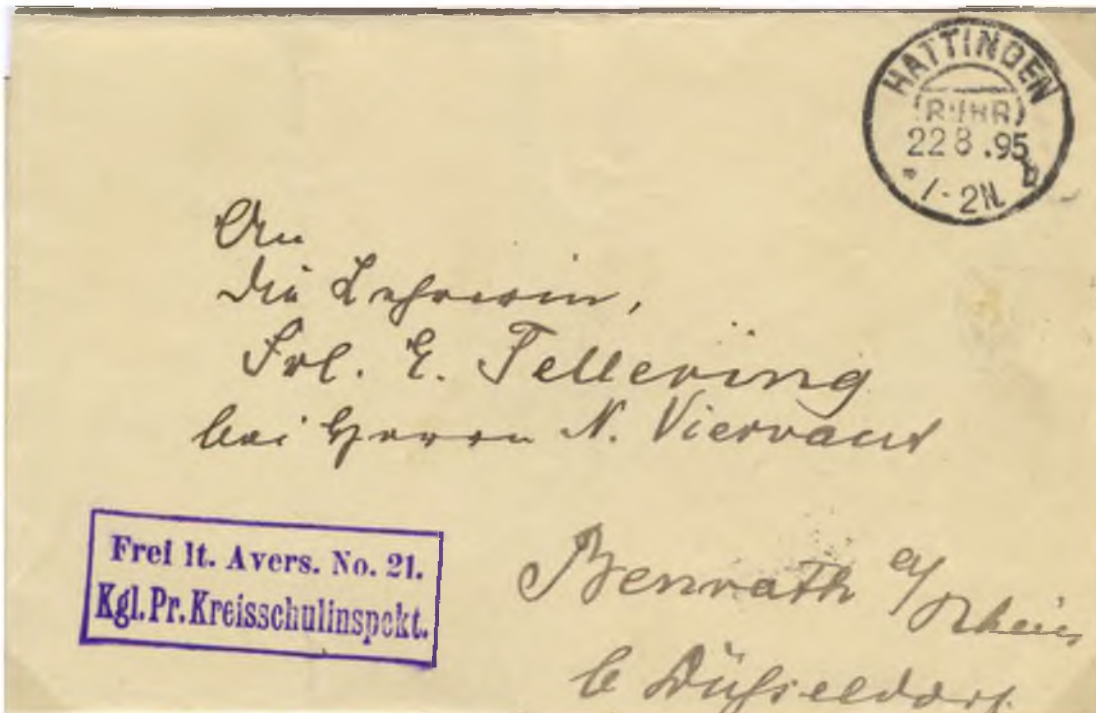 HATTINGEN
(RUHR)
22 8 .95
* 1-2N. b
An
die Lehrerin,
Frl. E. Tellering
bei Herrn N. Viervant
Benrath a/Rhein
b Düsseldorf.
Frei lt. Avers. No. 21.
Kgl. Pr. Kreisschulinspekt.